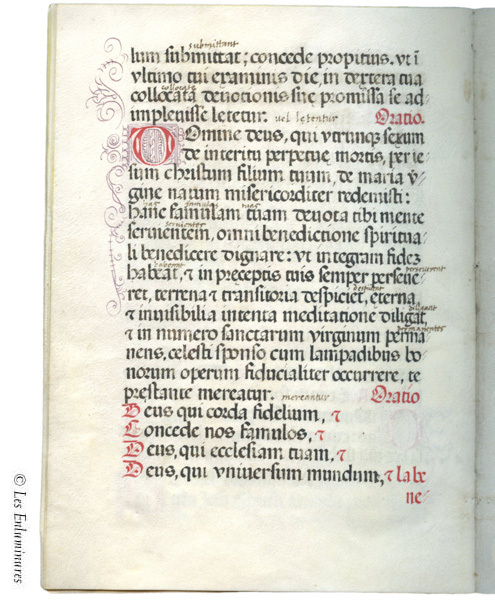 submittant
lum submittat; concede propitius. vt ī
vltimo tui examinis die, in dextera tua
collocate
collocata deuotionis sue promissa se ad-
impleuisse letetur. uel letentur Oratio.
Domine deus, qui vtrunque sexum
de interitu perpetue mortis, per ie-
sum christum filium tuum, de maria v̄-
gine natum misericorditer redemisti:
has famulas tuas
hanc famulam tuam deuota tibi mente
seruientes
seruientem, omni benedictione spiritua-
li benedicere dignare: vt integram fidez
habeant perseuerent
habeat, & in preceptis tuis semper perseue-
despiciant
ret, terrena & transitoria despiciet, eterna
diligant
& inuisibilia intenta meditatione diligat,
permanentes
& in numero sanctarum virginum perma-
nens, celesti sponso cum lampadibus bo-
norum operum fiducialiter occurrere, te
prestante mereatur. mereantur Oratio
Deus qui corda fidelium, &
Concede nos famulos, &
Deus, qui ecclesiam tuam, &
Deus, qui vniuersum mundum, & la be
ne-
© Les Enluminures